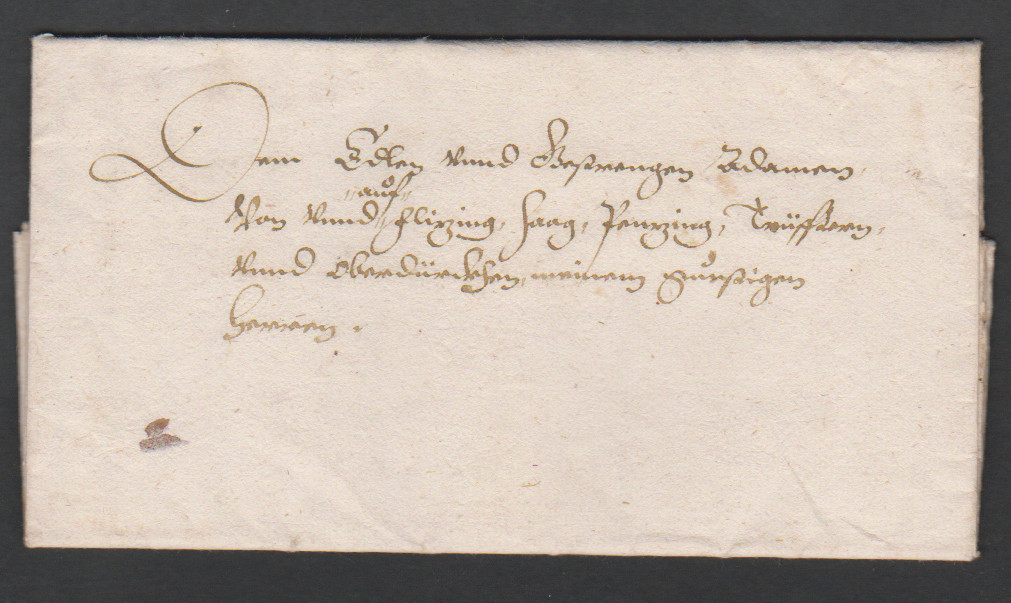 Dem Edlen vnnd Gestrengen Adamen,
Von vnnd auf Hirzing, Haag, Penzing,
vnnd Oberdürckhen, meinem günstigen
Herren.